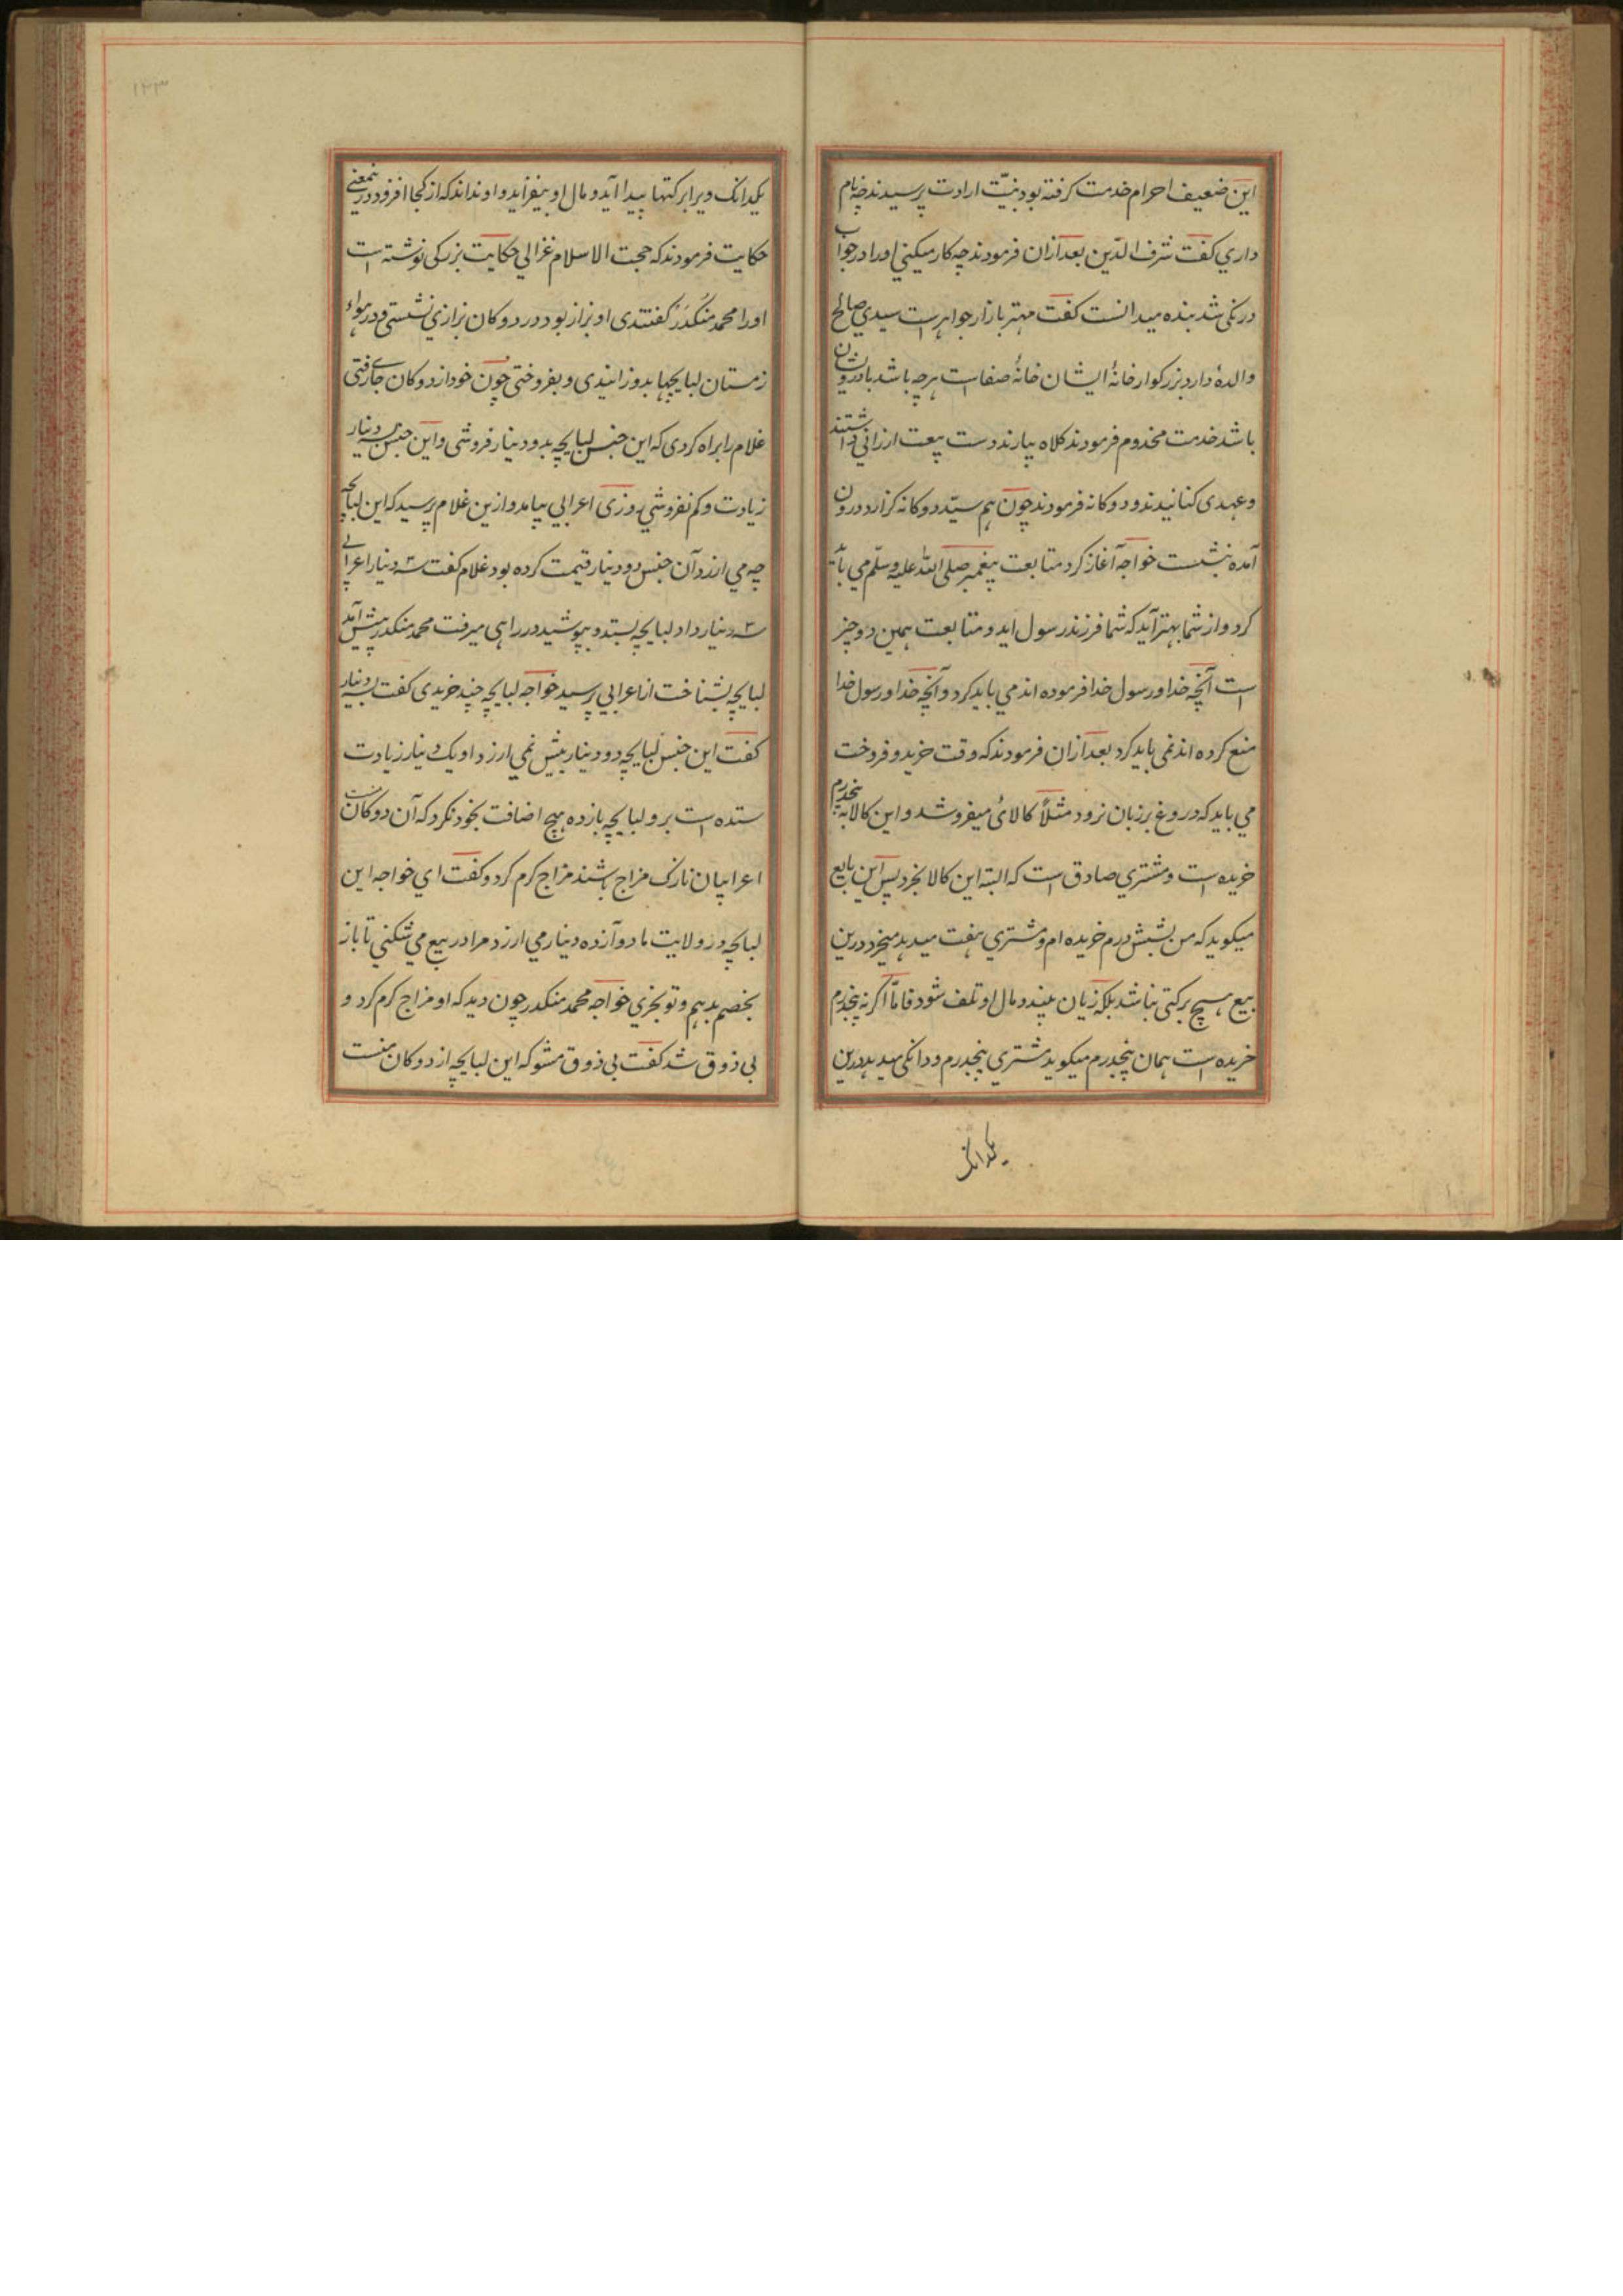 این ضعیف احرام خدمت کرفته بود بنیّت ارادت پرسیدند چه نام
داري کفت شرف الدّین بعد ازان فرمودند چه کار میکني اورا در جواب
درنکی شد بنده میدانست کفت مهتر بازار جواهرست سیدي صالح
والدهٔ دارد بزرکوار خانهٔ ایشان خانهٔ صفا است هرچه باشد با درویشان
باشد خدمت مخدوم فرمودند کلاه بیارند دست بیعت ارزاني داشتند
و عهدی کنانیدند و دوکانه فرمودند چون هم سیّد دوکانه کزارد درون
آمده بنشست خواجه آغاز کرد متابعت پیغمبر صلی الله علیه وسلّم مي باید
کرد و از شما بهتر آید که شما فرزند رسول اید و متابعت همین دو چیز
است آنچه خدا و رسول خدا فرموده اند مي باید کرد و آنچه خدا و رسول خدا
منع کرده اند نمی باید کرد بعد ازان فرمودند که وقت خرید و فروخت
مي باید که دروغ بر زبان نرود مثلاً کالائی میفروشد و این کالا به پنجدرم
خریده است و مشتري صادق است که البته این کالا بخرد پس این بایع
میکوید که من بشش درم خریده ام و مشتري هفت میدهد میخرد درین
بیع هیچ برکتی نباشد بلکه زیان بیند و مال او تلف شود فامّا اکر نه پنجدرم
خریده است همان پنجدرم میکوید مشتري پنجدرم و دانکی میدهد درین
یکدانک
یکدانک ویرا برکتها پیدا آید و مال او بیفزاید و او نداند که از کجا افزود درینمعني
حکایت فرمودند که حجت الاسلام غزالي حکایت بزرکی نوشته است
اورا محمد منکدر کفتندی او بزاز بود در دوکان بزازي نشستی و در هواء
زمستان لبایچها بدوزانیدی و بفروختی چون خود از دوکان جاے رفتی
غلام را براه کردی که این جنس لبایچه بدو دینار فروشی و این جنس بسه دینار
زیادت و کم نفروشي روزی اعرابي بیامد و ازین غلام پرسید که این لبایچه
چه مي ارزد آن جنس دو دینار قیمت کرده بود غلام کفت سه دینار اعرابے
سه دینار داد لبایچه بستد و بپوشید در راهی میرفت محمد منکدر پیش آمد
لبایچه بشناخت از اعرابي پرسید خواجه لبایچه چند خریدی کفت بسه دینار
کفت این جنس لبایچه دو دینار بیش نمي ارزد او یک دینار زیادت
ستده است برو لبایچه باز ده هیچ اضافت بخود نکرد که آن دوکان منست
اعرابیان نازک مزاج باشند مزاج کرم کرد و کفت اي خواجه این
لباچه در ولایت ما دوآزده دینار مي ارزد مرا در بیع مي شکني تا باز
بخصم بدهم و تو بخري خواجه محمد منکدر چون دید که او مزاج کرم کرد و
بی ذوق شد کفت بی ذوق مشو که این لبایچه از دوکان منست
۱۲۳